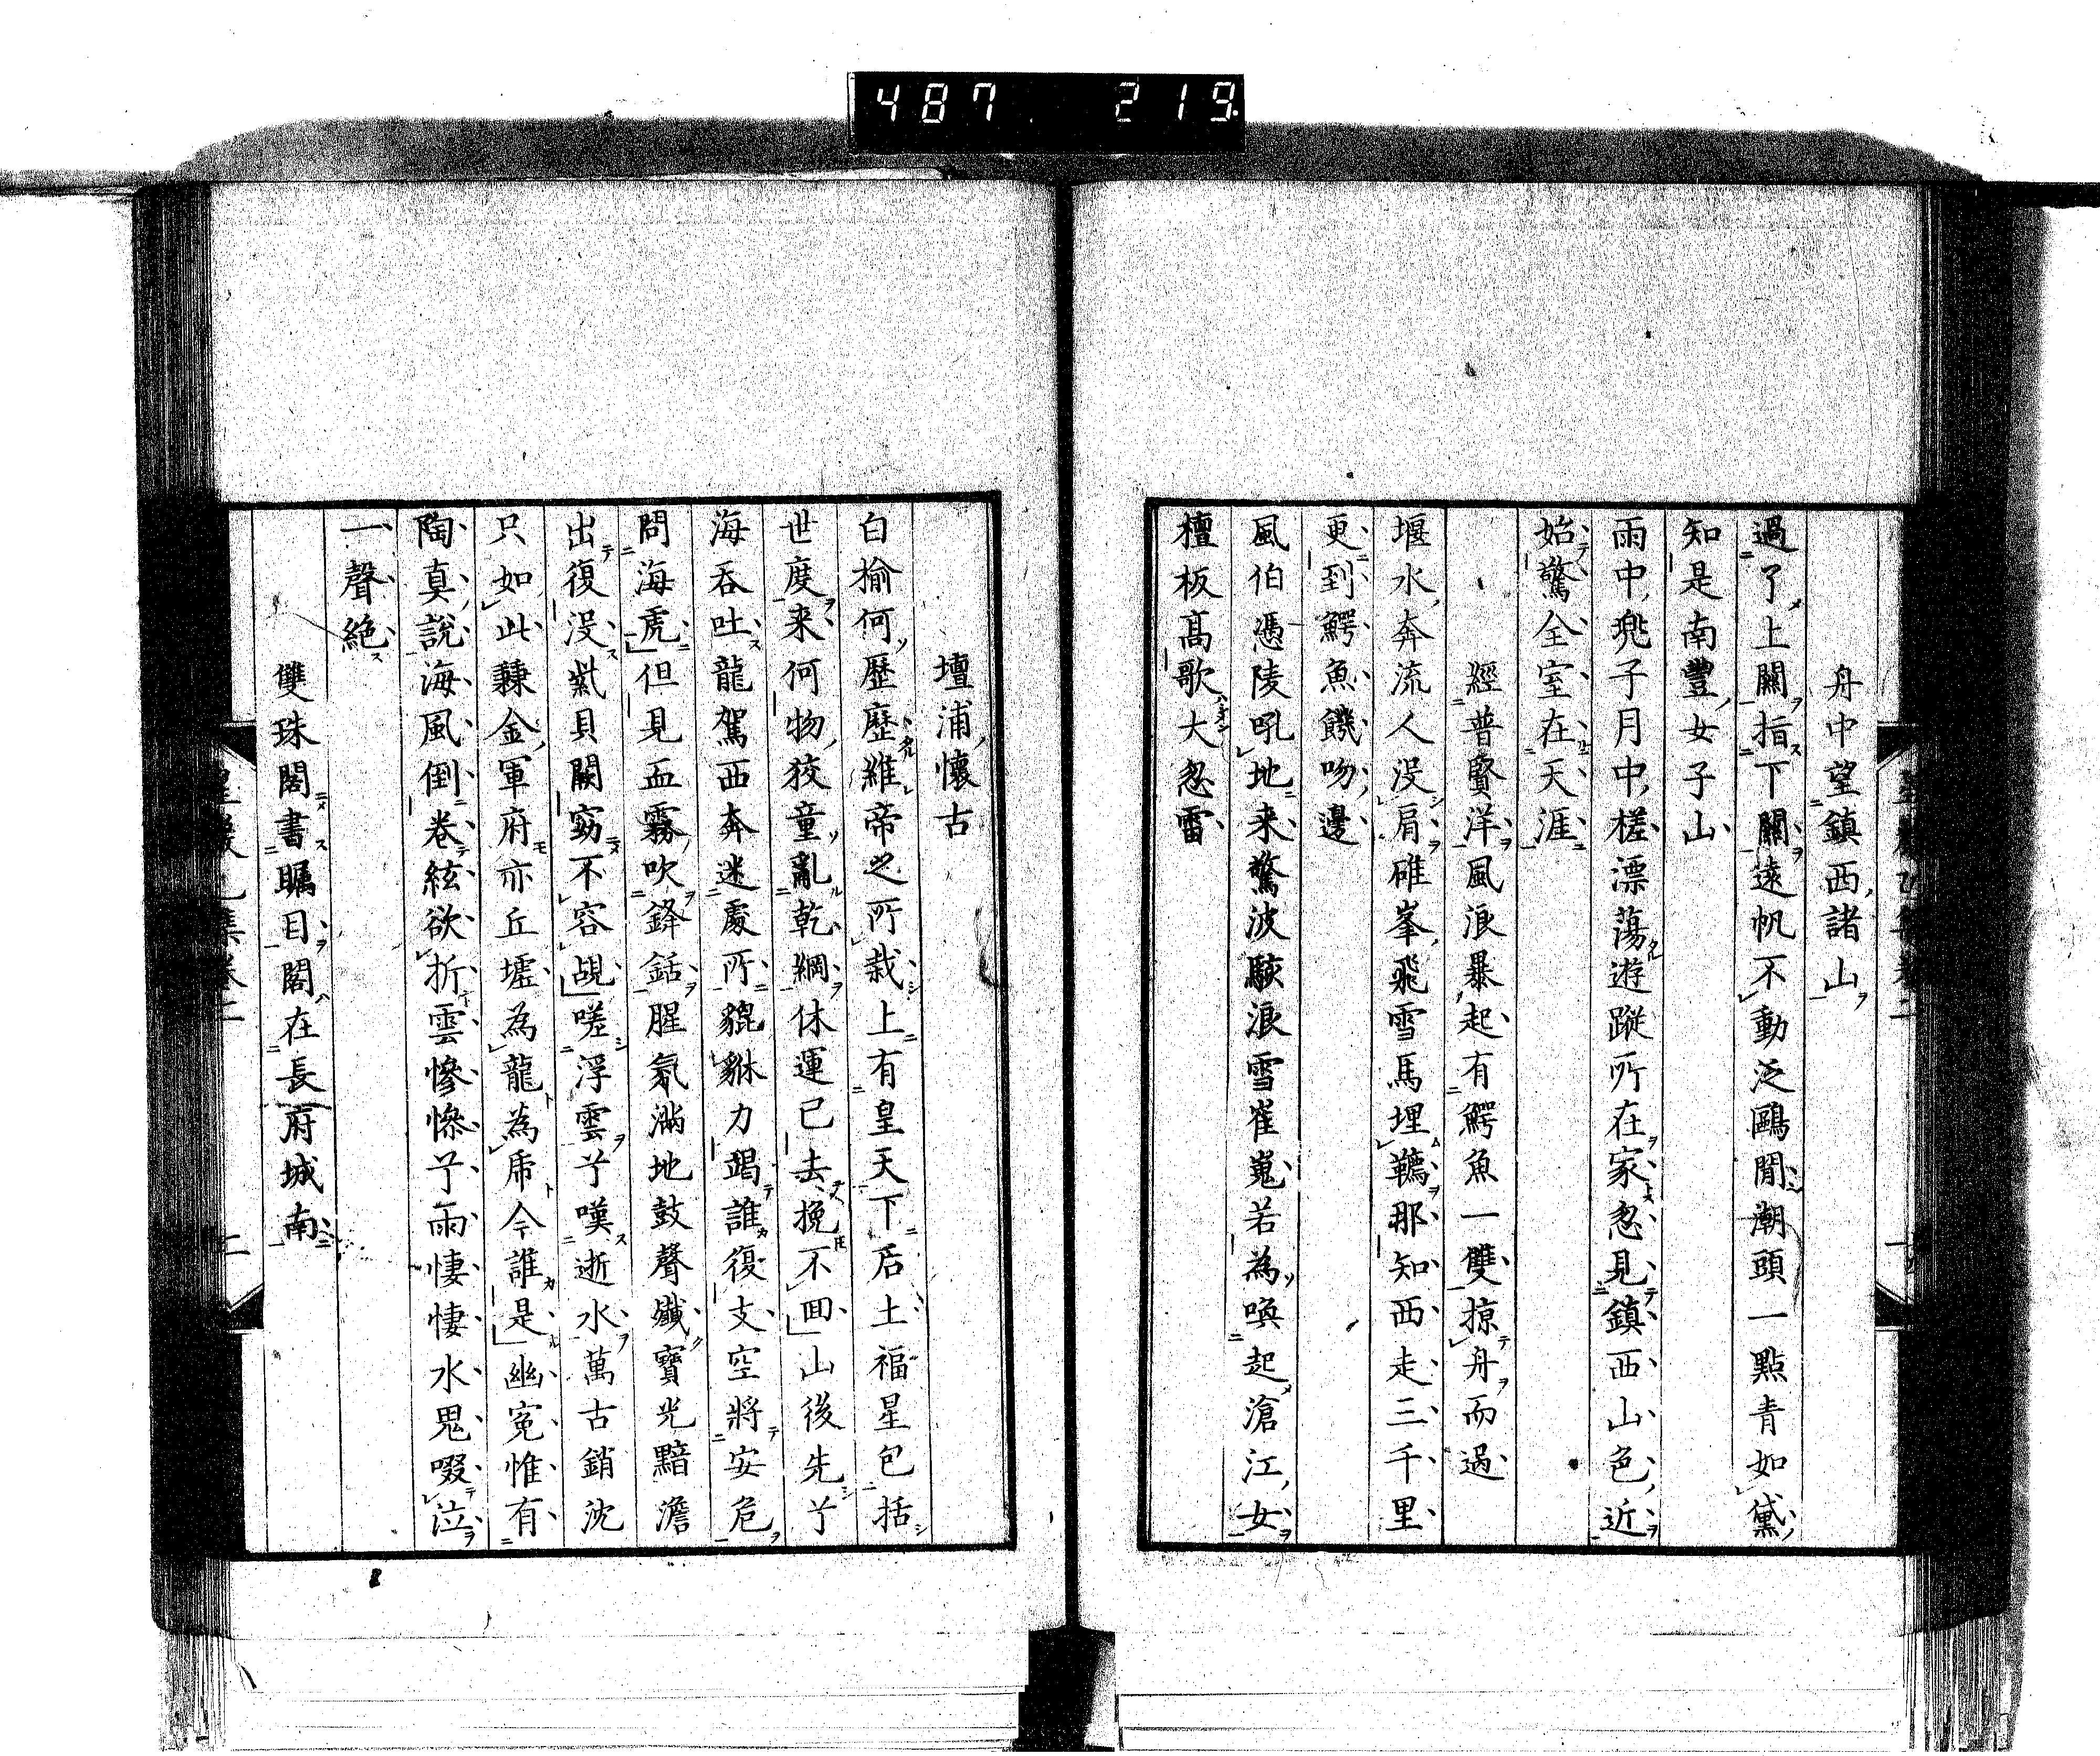 487 219
舟中望鎮西諸山
過了上關指下關遠帆不動泛鷗閒潮頭一點青如黛
知是南豐女子山
雨中兆子月中槎漂蕩遊蹤所在家忽見鎮西山色近
始驚全室在天涯
經普賢洋風浪暴起有鰐魚一雙掠舟而過
堰水奔流人沒肩碓峯飛雪馬埋韉那知西走三千里
更到鰐魚饑吻邊
風伯憑陵吼地来驚波駭浪雪崔嵬若為喚起滄江女
檀板高歌大忽雷
壇浦懷古
白揄何歷歷維帝之所栽上有皇天下后土福星包括
世度来何物狡童亂乾綱休運已去挽不回山後先兮
海吞吐龍駕西奔迷處所貔貅力竭誰復支空將安危
問海虎但見血霧吹鋒銛腥氣滿地鼓聲殲寶光黯澹
出復沒紫貝闕窈不容覘嗟浮雲兮嘆逝水萬古銷沈
只如此隸金軍府亦丘墟為龍為虎今誰是幽冤惟有
陶真說海風倒卷絃欲折雲慘慘兮雨悽悽水鬼啜泣
一聲絶
雙珠閣書矚目閣在長府城南
二